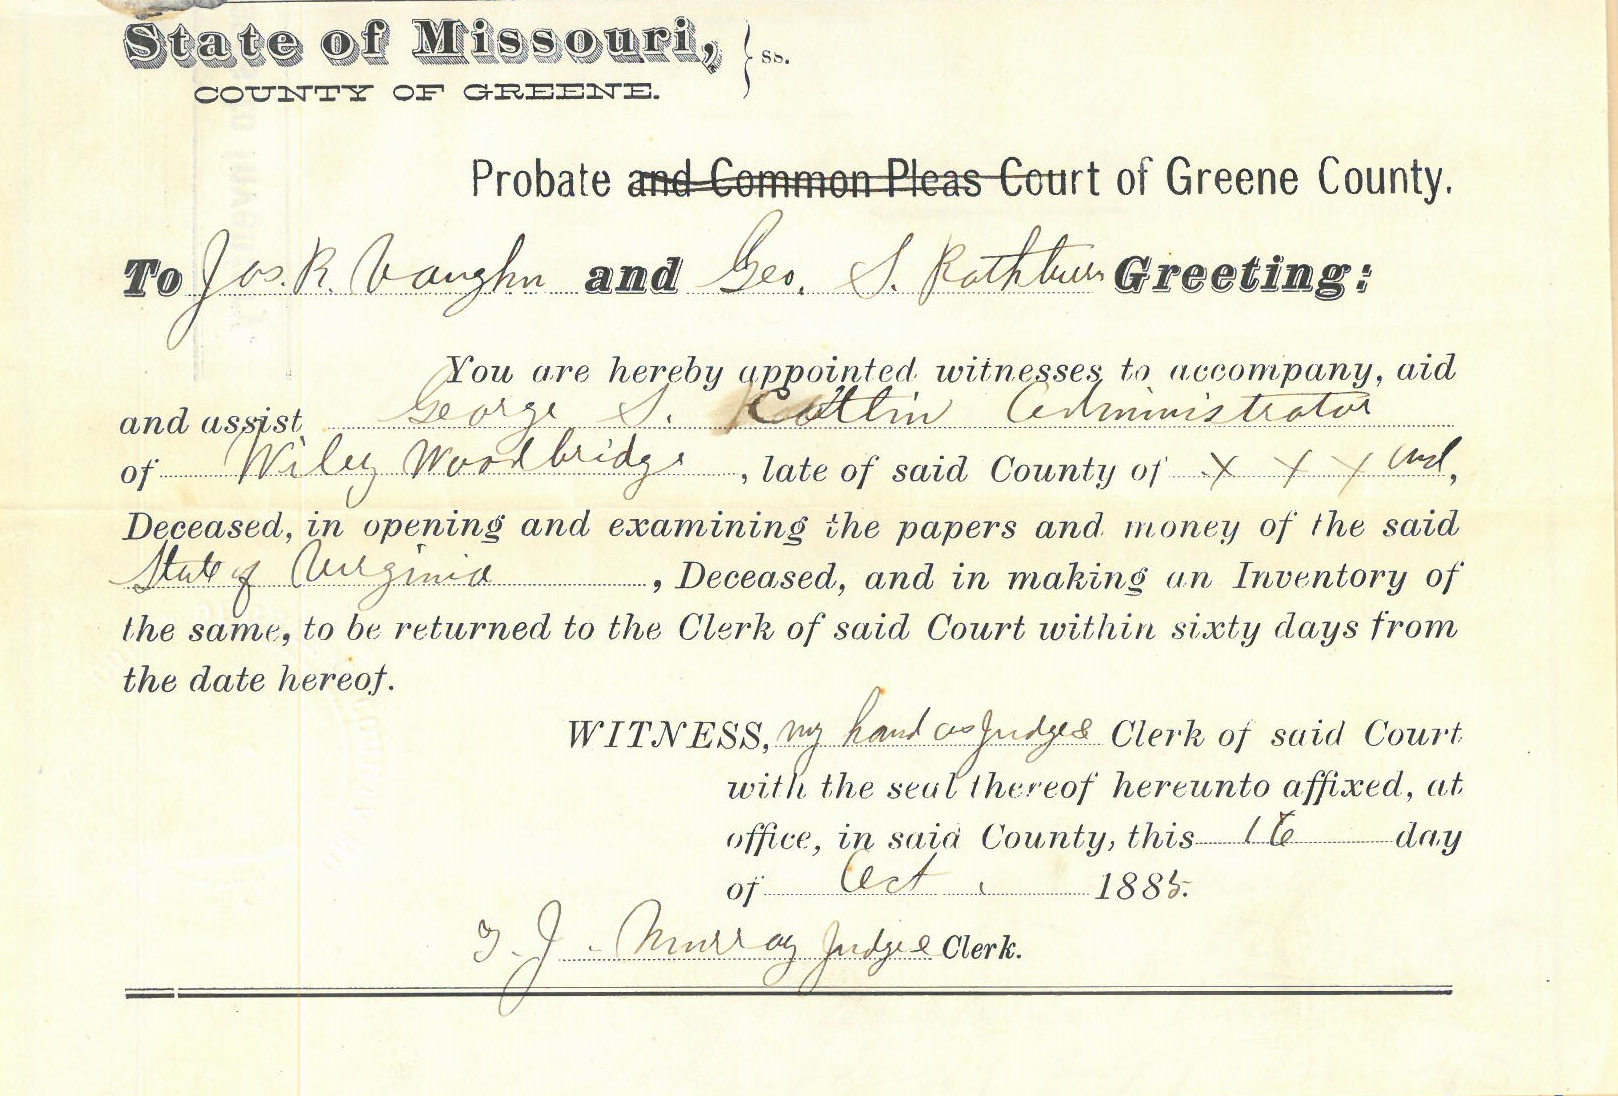 State of Missouri, } ss.
COUNTY OF GREENE.
Probate and Common Pleas Court of Greene County.
To Jos. R. Vaughn and Geo. S. Rathbun Greeting:
You are hereby appointed witnesses to accompany, aid
and assist George S. Catlin Administrator
of Wiley Woodbridge, late of said County of x x x and,
Deceased, in opening and examining the papers and money of the said
State of Virginia, Deceased, and in making an Inventory of
the same, to be returned to the Clerk of said Court within sixty days from
the date hereof.
WITNESS, my hand as Judge Clerk of said Court
with the seal thereof hereunto affixed, at
office, in said County, this 16 day
of Oct. 1885.
T. J. Murray Judge Clerk.